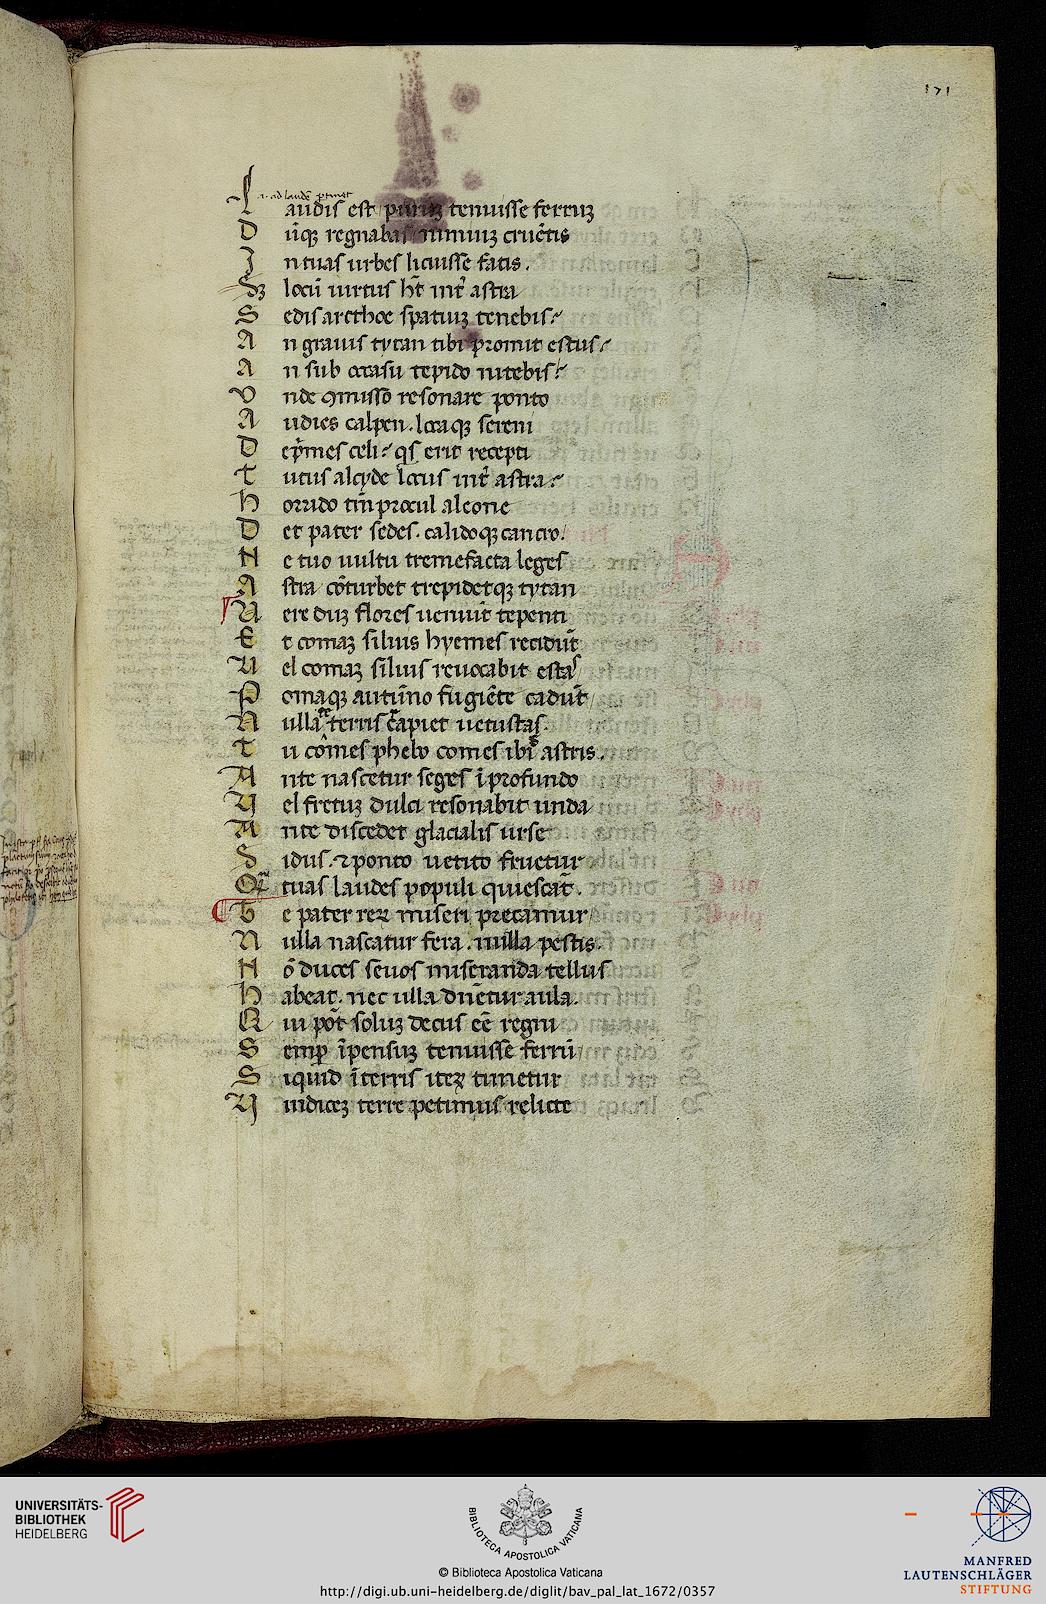 171
.i. ad laudē ptinet
Laudis est purū tenuisse ferrūꝫ
Dūqꝫ regnabas nimiuꝫ cruētis
In tuas urbes licuisse fatis.
Sꝫ locū uirtus ht̄ int̄ astra
Sedis arcthoe spatiuꝫ tenebis
An grauis tytan tibi promit estus
An sub occasu tepido nitebis
Vnde ꝯmisso resonare ponto
Audies calpen. loca qꝫ sereni
Dep̄mes celi qs erit recepti
Tutus alcyde locus int̄ astra
Horrido tm̄ procul a leone
Det pater sedes. calidoqꝫ cancro.
Ne tuo uultu tremefacta leges
Astra cōturbet trepidetqꝫ tytan
Uere duꝫ flores uenīut tepenti
Et comaꝫ siluis hyemes recidūt
Uel comaꝫ siluis reuocabit estas
Pomaqꝫ autūno fugiēte cadūt
Nulla terris rapiet uetustas.
Tu comes phebo comes ibis astris.
Ante nascetur seges ī profundo
Vel fretuꝫ dulci resonabit unda
Ante discedet glacialis urse
Sidus. ⁊ ponto uetito fruetur
Qꝫ tuas laudes populi quiescāt.
Te pater rerꝫ miseri precamur
Nulla nascatur fera. nulla pestis.
Nō duces seuos miseranda tellus
Habeat. nec ulla dn̄etur aula.
Qui pōt soluꝫ decus eē regni
Semp ī pensuꝫ tenuisse ferrū
Siquid ī terris iterꝫ timetur
Vindiceꝫ terre petimus relicte
UNIVERSITÄTS-
BIBLIOTHEK
HEIDELBERG
BIBLIOTECA APOSTOLICA VATICANA
© Biblioteca Apostolica Vaticana
http://digi.ub.uni-heidelberg.de/diglit/bav_pal_lat_1672/0357
MANFRED
LAUTENSCHLÄGER
STIFTUNG